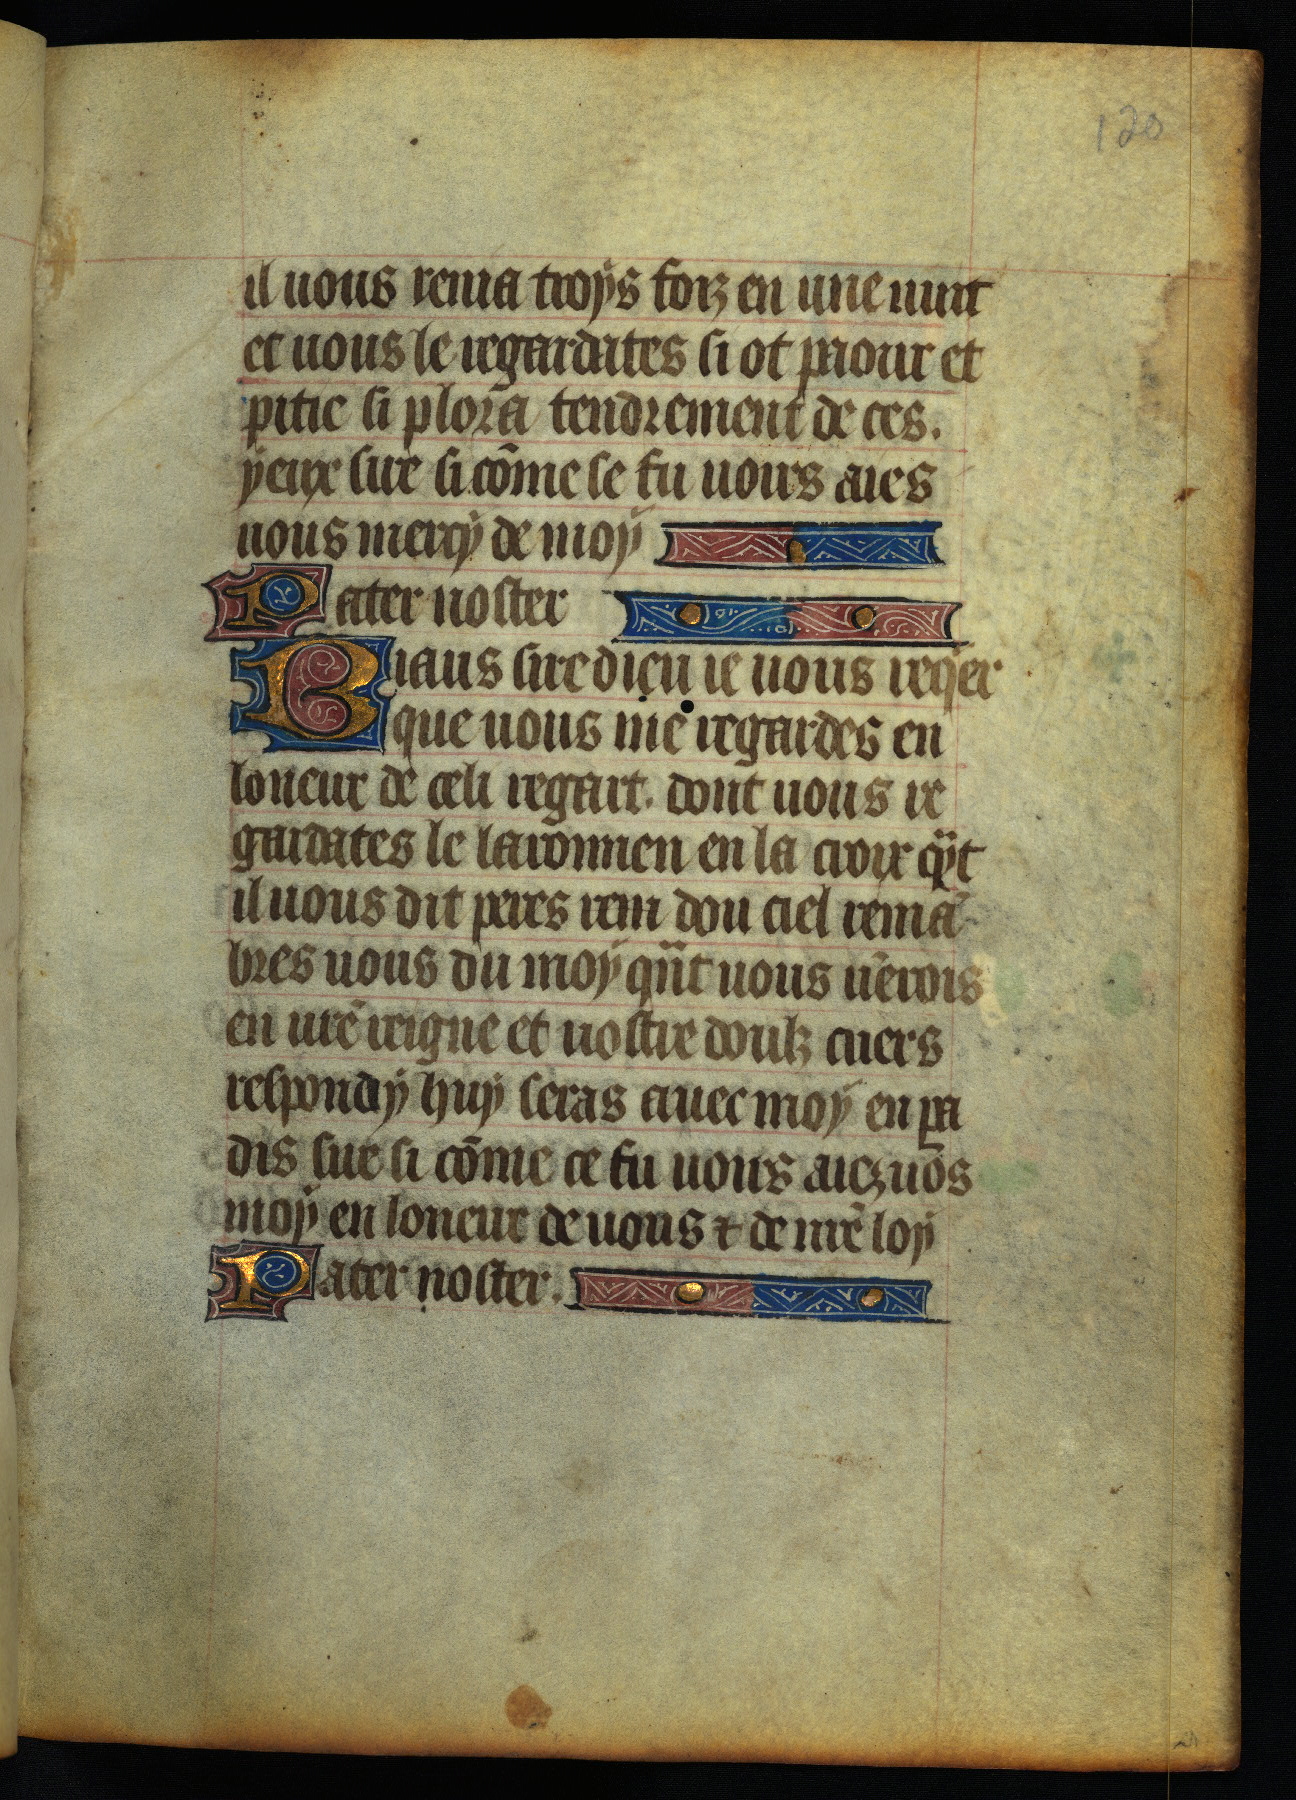 120
il uous renia troÿs forz en une nuit
et uous le regardates si ot paour et
pitie si plora tendrement de ces.
ÿeux sire si cōme se fu uous aies
uous mercÿ de moÿ
Pater noster
Biaus sire dieu ie uous reqier
que uous me regardes en
loneur de celi regart. dont uous re
gardates le laronnen en la croix qȳt
il uous dit peres rem dou ciel remā
bres uous du moÿ qn̄t uous uērois
en urē reigne et uostre doulz cuers
respondiÿ huÿ seras auec moÿ en pa
dis sire si cōme ce fu uous aiez uos
moÿ en loneur de uous ⁊ de mrē loÿ
Pater noster.